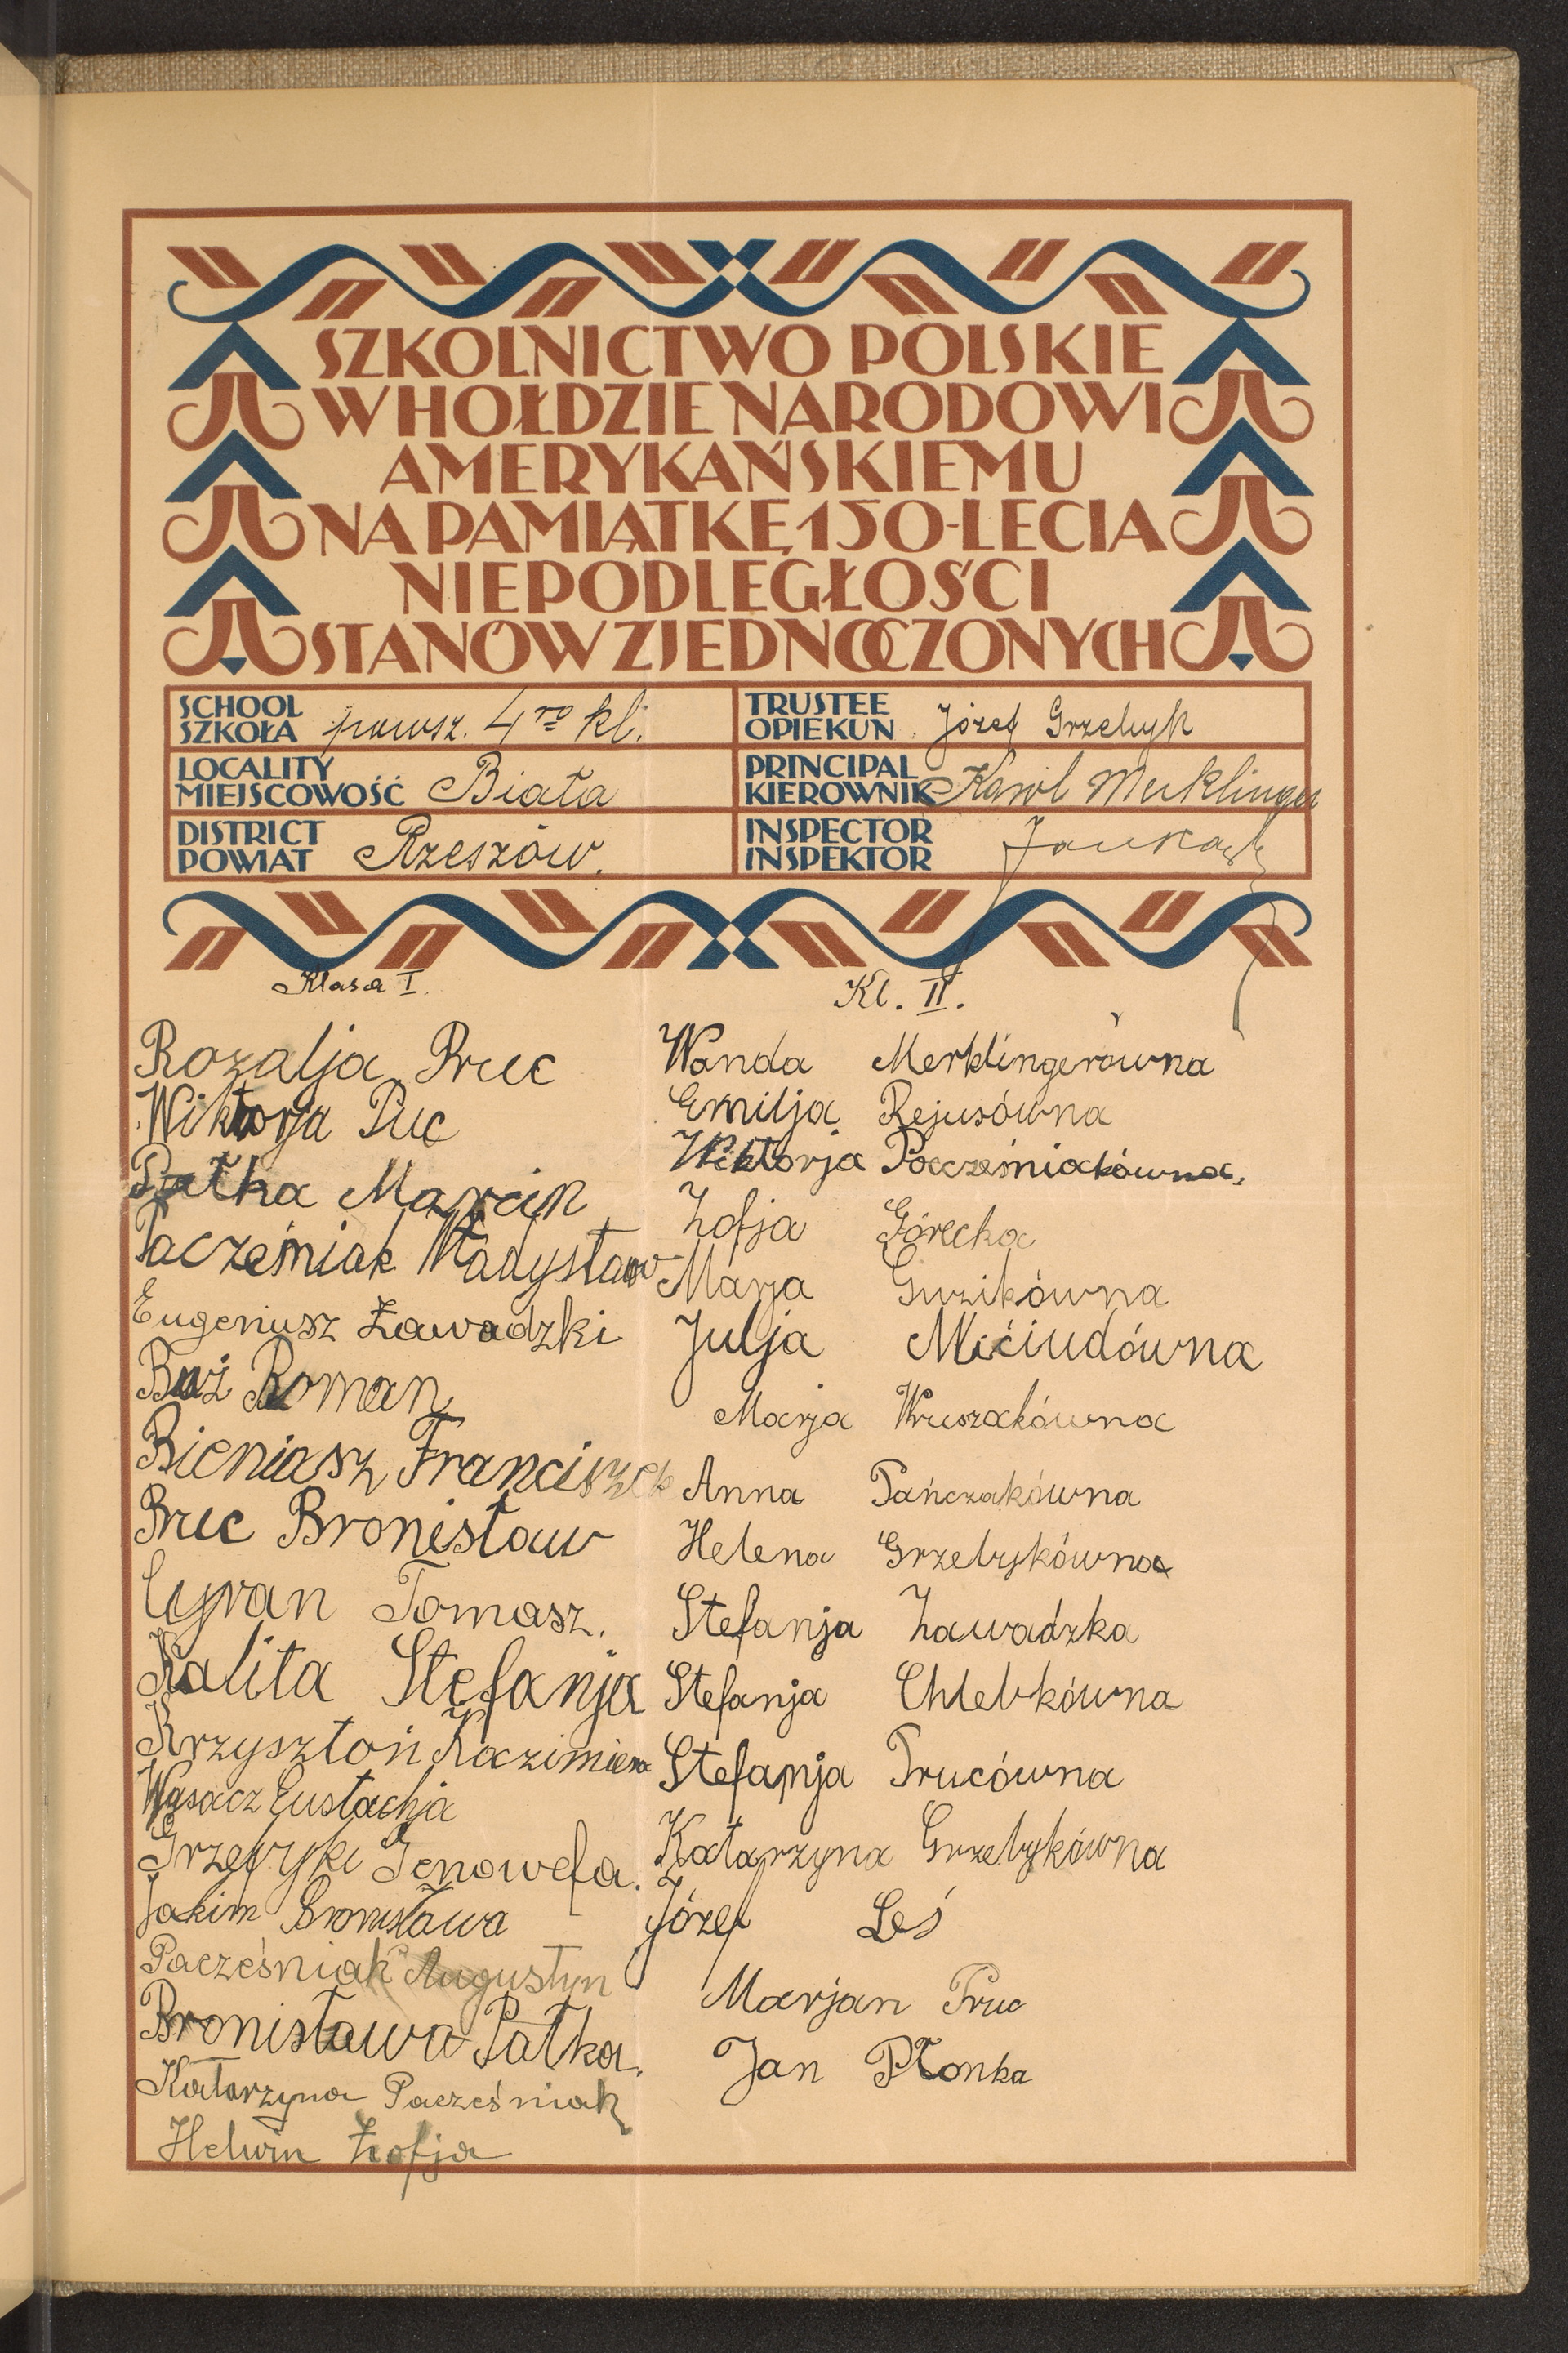 SZKOLNICTWO POLSKIE
W HOŁDZIE NARODOWI
AMERYKAŃSKIEMU
NA PAMIĄTKĘ 150-LECIA
NIEPODLEGŁOŚCI
STANÓW ZJEDNOCZONYCH
SCHOOL
SZKOŁA powsz. 4ro kl.
TRUSTEE
OPIEKUN Józef Grzebyk
LOCALITY
MIEJSCOWOŚĆ Biała
PRINCIPAL
KIEROWNIK Karol Merklinger
DISTRICT
POWIAT Rzeszów.
INSPECTOR
INSPEKTOR
Klasa I.
Rozalja Pruc
Wiktorja Puc
Patka Marcin
Pacześniak Władysław
Eugeniusz Zawadzki
Buż Roman
Bieniasz Franciszek
Pruc Bronisław
Cyran Tomasz.
Kalita Stefanja
Krzysztoń Kazimiera
Wąsacz Eustachja
Grzebyk Genowefa.
Jakim Bronisława
Pacześniak Augustyn
Bronisława Patka.
Katarzyna Pacześniak
Helwin Zofja
Kl. II.
Wanda Merklingerówna
Emilja Rejusówna
Wiktorja Pacześniakówna.
Zofja Górecka
Marja Guzikówna
Julja Mićiudówna
Marja Wruszakówna
Anna Pańczakówna
Helena Grzebykówna
Stefanja Zawadzka
Stefanja Chlebkówna
Stefanja Prucówna
Katarzyna Grzebykówna
Józef Leś
Marjan Pruc
Jan Płonka